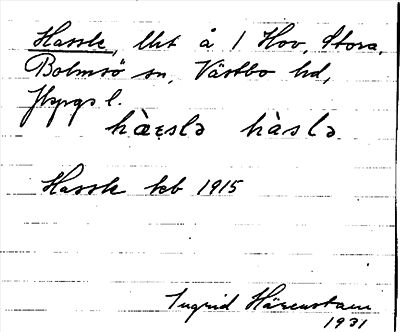 Hassle, lht å 1 Hov, Stora,
Bolmsö sn, Västbo hd,
Jkpgs l.
hàɛslə hàslə
Hassle kb 1915
Ingrid Härenstam
1931